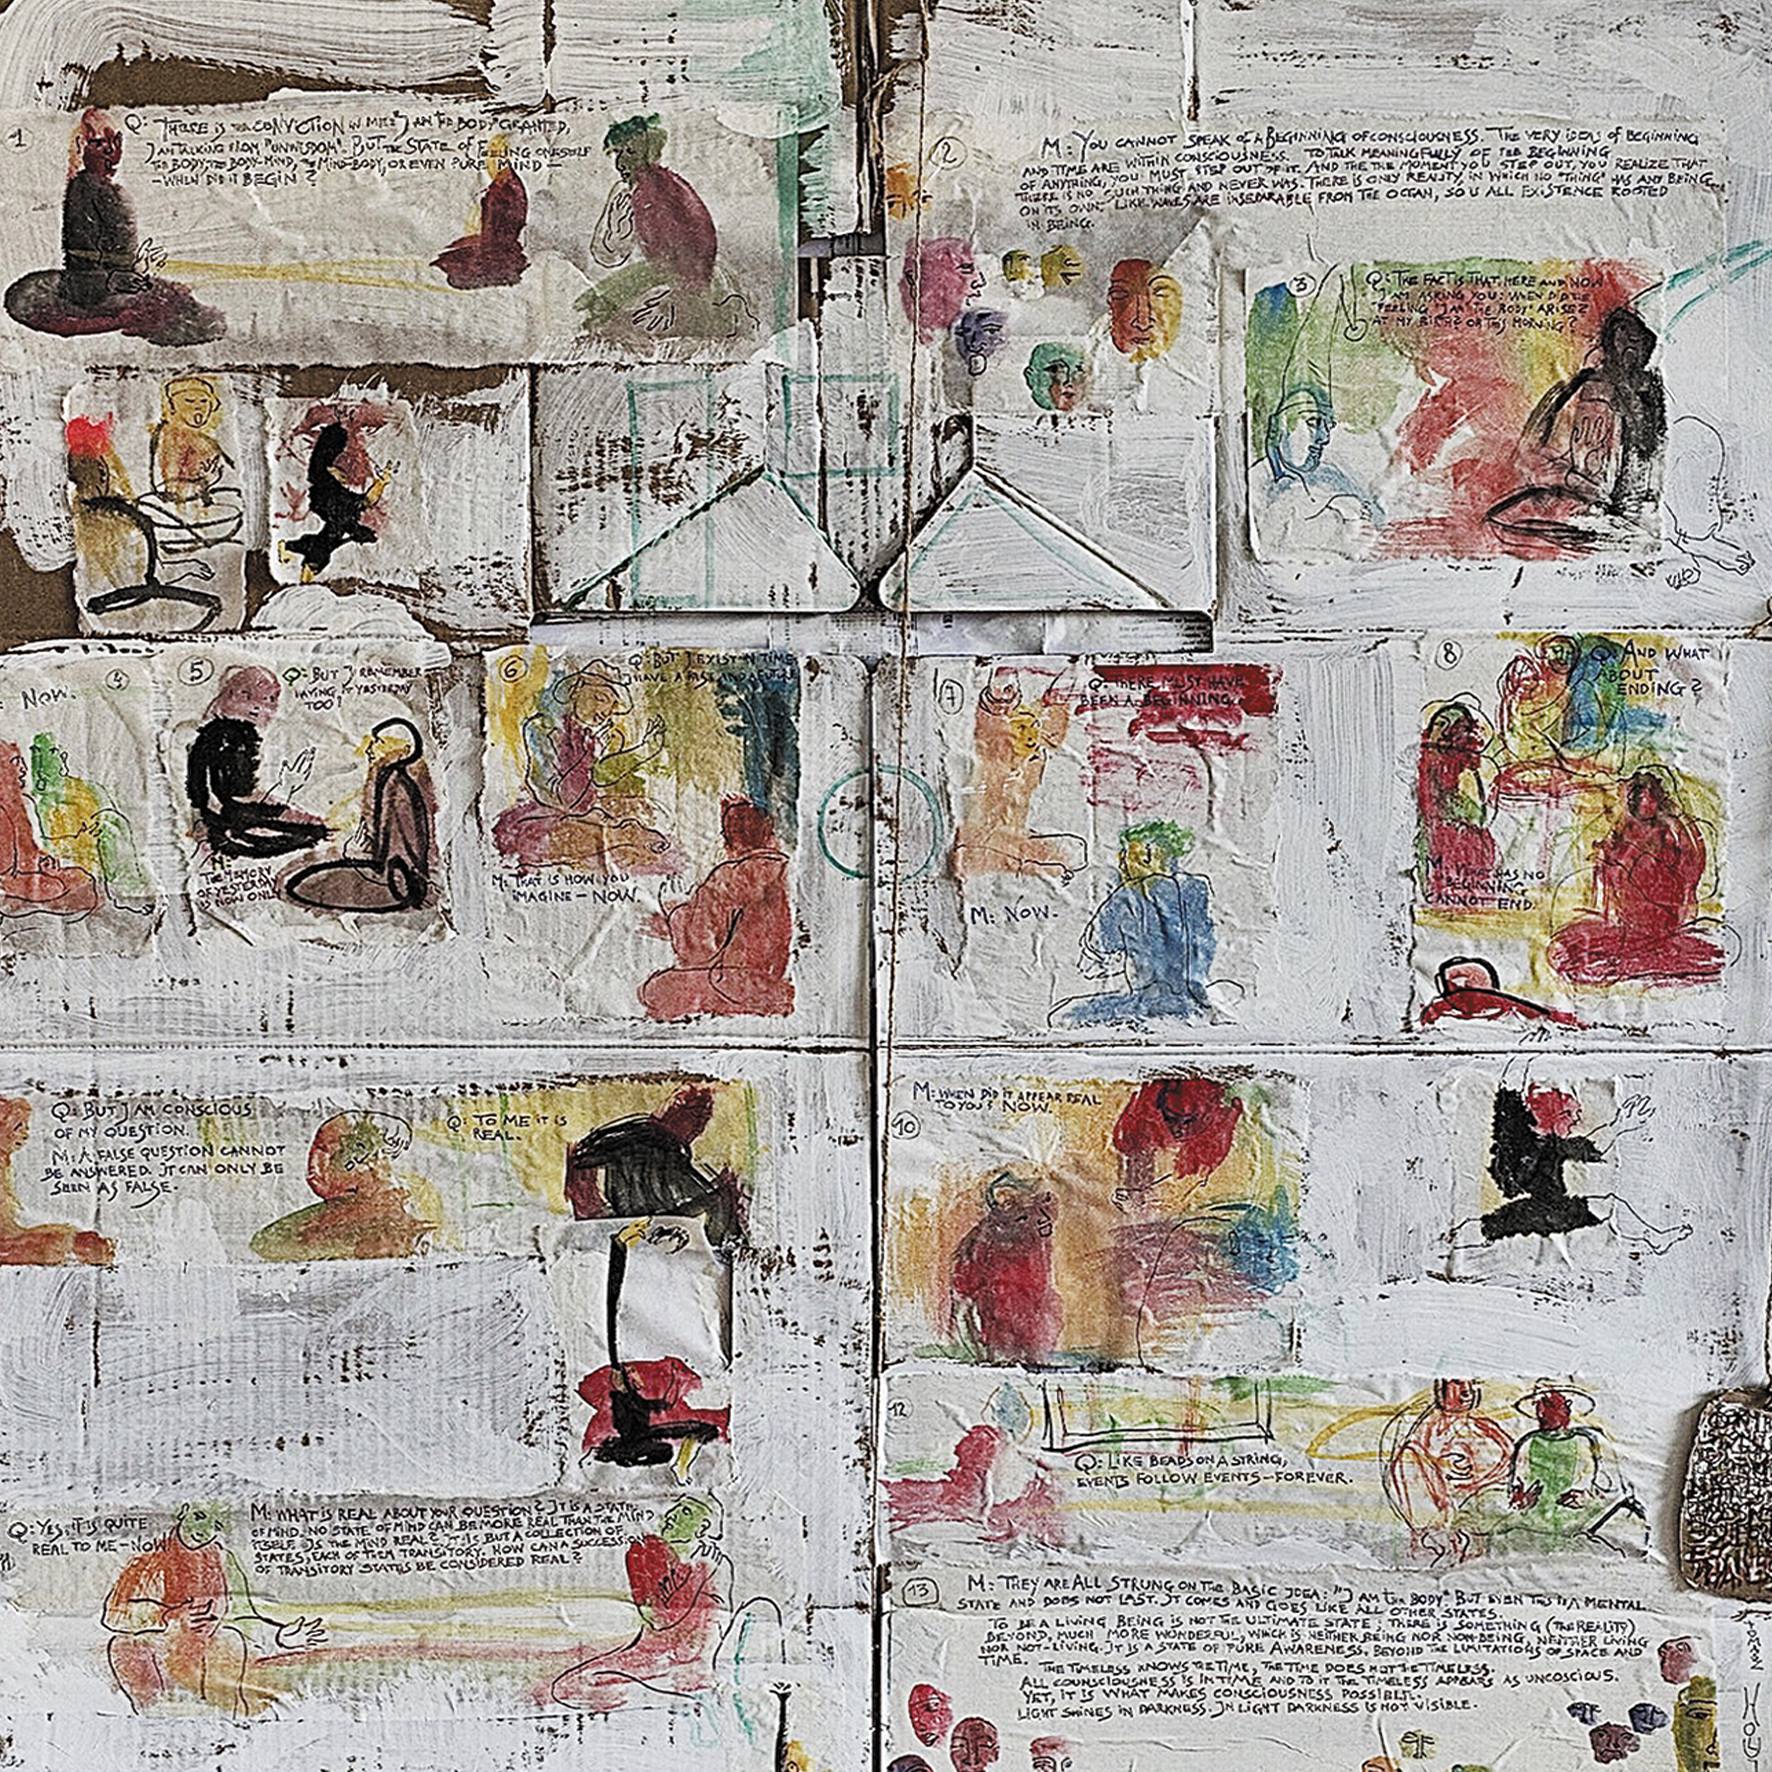 1
Q: THERE IS THE CONVICTION IN ME: "I AM THE BODY" GRANTED,
I AM TALKING FROM "UNWISDOM". BUT THE STATE OF FEELING ONESELF
THE BODY, THE BODY-MIND, THE MIND-BODY, OR EVEN PURE MIND —
— WHEN DID IT BEGIN?
2
M: YOU CANNOT SPEAK OF A BEGINNING OF CONSCIOUSNESS. THE VERY IDEAS OF BEGINNING
AND TIME ARE WITHIN CONSCIOUSNESS. TO TALK MEANINGFULLY OF THE BEGINNING
OF ANYTHING, YOU MUST STEP OUT OF IT. AND THE THE MOMENT YOU STEP OUT, YOU REALIZE THAT
THERE IS NO SUCH THING AND NEVER WAS. THERE IS ONLY REALITY, IN WHICH NO "THING" HAS ANY BEING
ON ITS OWN. LIKE WAVES ARE INSEPARABLE FROM THE OCEAN, SO IS ALL EXISTENCE ROOTED
IN BEING.
3
Q: THE FACT IS THAT HERE AND NOW
I AM ASKING YOU: WHEN DID THE
FEELING "I AM THE BODY" ARISE?
AT MY BIRTH? OR THIS MORNING?
4
NOW.
5
Q: BUT I REMEMBER
HAVING IT YESTERDAY
TOO!
M:
THE MEMORY
OF YESTERDAY
IS NOW ONLY
6
Q: BUT I EXIST IN TIME
I HAVE A PAST AND A FUTURE
M: THAT IS HOW YOU
IMAGINE — NOW.
7
Q: THERE MUST HAVE
BEEN A BEGINNING.
M: NOW.
8
Q: AND WHAT
ABOUT
ENDING?
M: WHAT HAS NO
BEGINNING
CANNOT END.
Q: BUT I AM CONSCIOUS
OF MY QUESTION.
M: A FALSE QUESTION CANNOT
BE ANSWERED. IT CAN ONLY BE
SEEN AS FALSE.
Q: TO ME IT IS
REAL.
10
M: WHEN DID IT APPEAR REAL
TO YOU? NOW.
Q: YES, IT IS QUITE
REAL TO ME — NOW
M: WHAT IS REAL ABOUT YOUR QUESTION? IT IS A STATE
OF MIND. NO STATE OF MIND CAN BE MORE REAL THAN THE MIND
ITSELF. IS THE MIND REAL? IT IS BUT A COLLECTION OF
STATES, EACH OF THEM TRANSITORY. HOW CAN A SUCCESSION
OF TRANSITORY STATES BE CONSIDERED REAL?
12
Q: LIKE BEADS ON A STRING,
EVENTS FOLLOW EVENTS — FOREVER.
13
M: THEY ARE ALL STRUNG ON THE BASIC IDEA: "I AM THE BODY" BUT EVEN THIS IS A MENTAL
STATE AND DOES NOT LAST. IT COMES AND GOES LIKE ALL OTHER STATES.
TO BE A LIVING BEING IS NOT THE ULTIMATE STATE; THERE IS SOMETHING (THE REALITY)
BEYOND, MUCH MORE WONDERFUL, WHICH IS NEITHER BEING NOR NON-BEING, NEITHER LIVING
NOR NOT-LIVING. IT IS A STATE OF PURE AWARENESS, BEYOND THE LIMITATIONS OF SPACE AND
TIME.
THE TIMELESS KNOWS THE TIME, THE TIME DOES NOT THE TIMELESS.
ALL COUNSCIOUSNESS IS IN TIME AND TO IT THE TIMELESS APPEARS AS UNCOSCIOUS.
YET, IT IS WHAT MAKES CONSCIOUSNESS POSSIBLE.
LIGHT SHINES IN DARKNESS. IN LIGHT DARKNESS IS NOT VISIBLE.